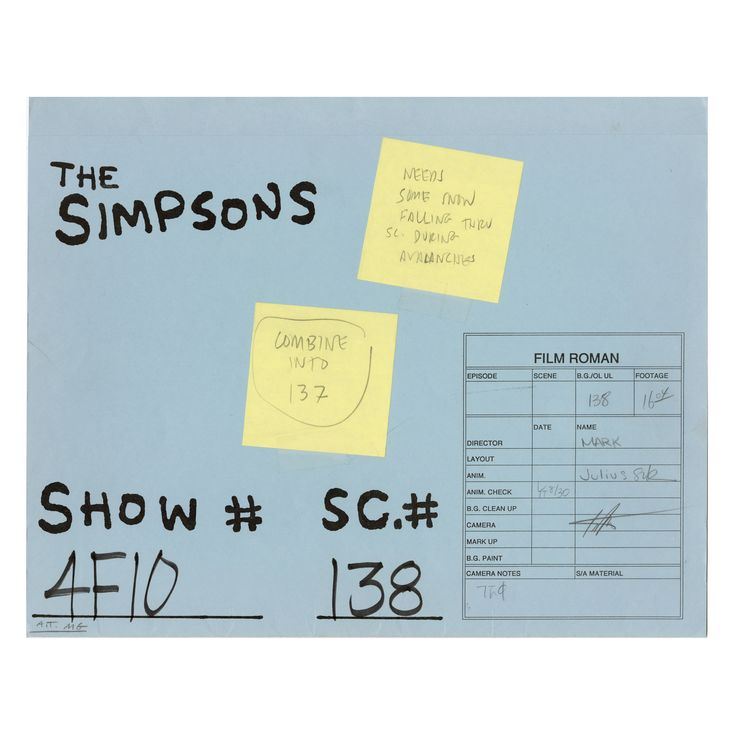 THE
SIMPSONS
NEEDS
SOME SNOW
FALLING THRU
SC. DURING
AVALANCHES
COMBINE
INTO
137
FILM ROMAN
EPISODE SCENE B.G./OL UL FOOTAGE
138 16
DATE NAME
DIRECTOR MARK
LAYOUT
ANIM. Julius
ANIM. CHECK
B.G. CLEAN UP
CAMERA
MARK UP
B.G. PAINT
CAMERA NOTES S/A MATERIAL
SHOW # SC.#
4F10 138